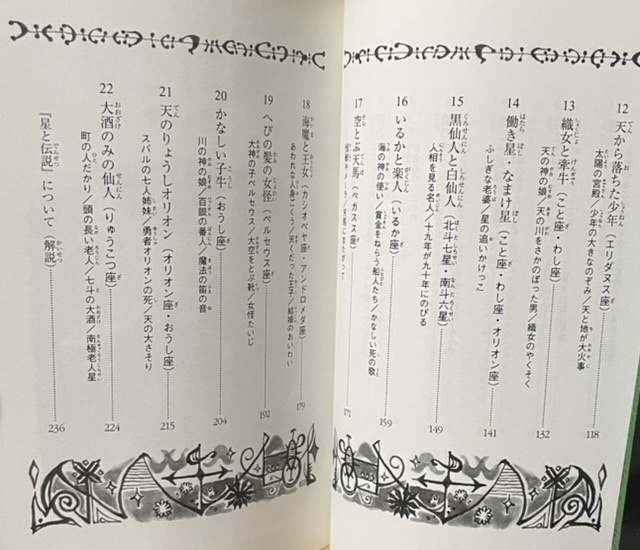 12 天から落ちた少年（エリダヌス座）……118
太陽の宮殿／少年の大きなのぞみ／天と地が大火事
13 織女と牽牛（こと座・わし座）……132
天の神の娘／天の川をさかのぼった男／織女のやくそく
14 働き星・なまけ星（こと座・わし座・オリオン座）……141
ふしぎな老婆／星の追いかけっこ
15 黒仙人と白仙人（北斗七星・南斗六星）……149
人相を見る名人／十九年が九十年にのびる
16 いるかと楽人（いるか座）……159
海の神の使い／賞金をねらう船人たち／かなしい死の歌
17 空とぶ天馬（ペガスス座）……171
天馬にまたがって
18 海魔と王女（カシオペヤ座・アンドロメダ座）……179
あわれな人身ごくう／天くだった王子／結婚のおいわい
19 へびの髪の女怪（ペルセウス座）……192
大神の子ペルセウス／大空をとぶ靴／女怪たいじ
20 かなしい子牛（おうし座）……204
川の神の娘／百眼の番人／魔法の笛の音
21 天のりょうしオリオン（オリオン座・おうし座）……215
スバルの七人姉妹／勇者オリオンの死／天の大さそり
22 大酒のみの仙人（りゅうこつ座）……224
町の人だかり／頭の長い老人／七斗の大酒／南極老人星
『星と伝説』について（解説）……236